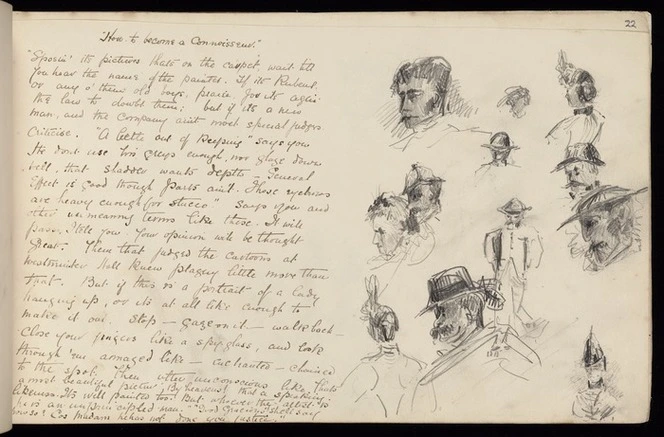 22
"How to become a Connoisseur."
"Sposin' its pictures thats on the carpet wait till
you hear the name of the painter. If its Rubens,
or any o' them old boys, praise, for its agin
the law to doubt them; but if its a new
man, and the company aint most special judges
criticise. "A leetle out of keeping" says you
He dont use his greys enough, nor glaze down
well, that shadow wants depth – General
effect is good though parts aint. Those eyebrows
are heavy enough for stucco" says you and
other unmeaning terms like these. It will
pass, I tell you. Your opinion will be thought
great. Them that judged the cartoons at
Westminster Hall knew plaguy little more than
that. But if this is a portrait of a lady
hanging up, or its at all like enough to
make it out. Stop – gaze on it – walk back –
close your fingers like a spyglass, and look
through 'em amazed like – enchanted – chained
to the spot. Then utter, unconscious like, "thats
a most beautiful pictur; By heavens that a speaking
likeness. Its well painted too. But whoever the artist is
he is an unprincipled man." "Good Gracious" she'll say
how so? Cos Madam he has not done you justice."